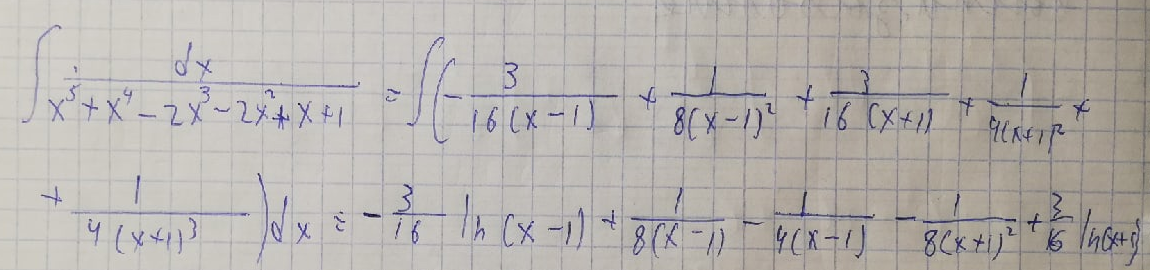 ∫ dx / (x⁵ + x⁴ − 2x³ − 2x² + x + 1) = ∫(− 3 / (16(x−1)) + 1 / (8(x−1)²) + 3 / (16(x+1)) + 1 / (4(x+1)²) +
+ 1 / (4(x+1)³)) dx = − 3/16 ln(x−1) + 1 / (8(x−1)) − 1 / (4(x−1)) − 1 / (8(x+1)²) + 3/16 ln(x+1)